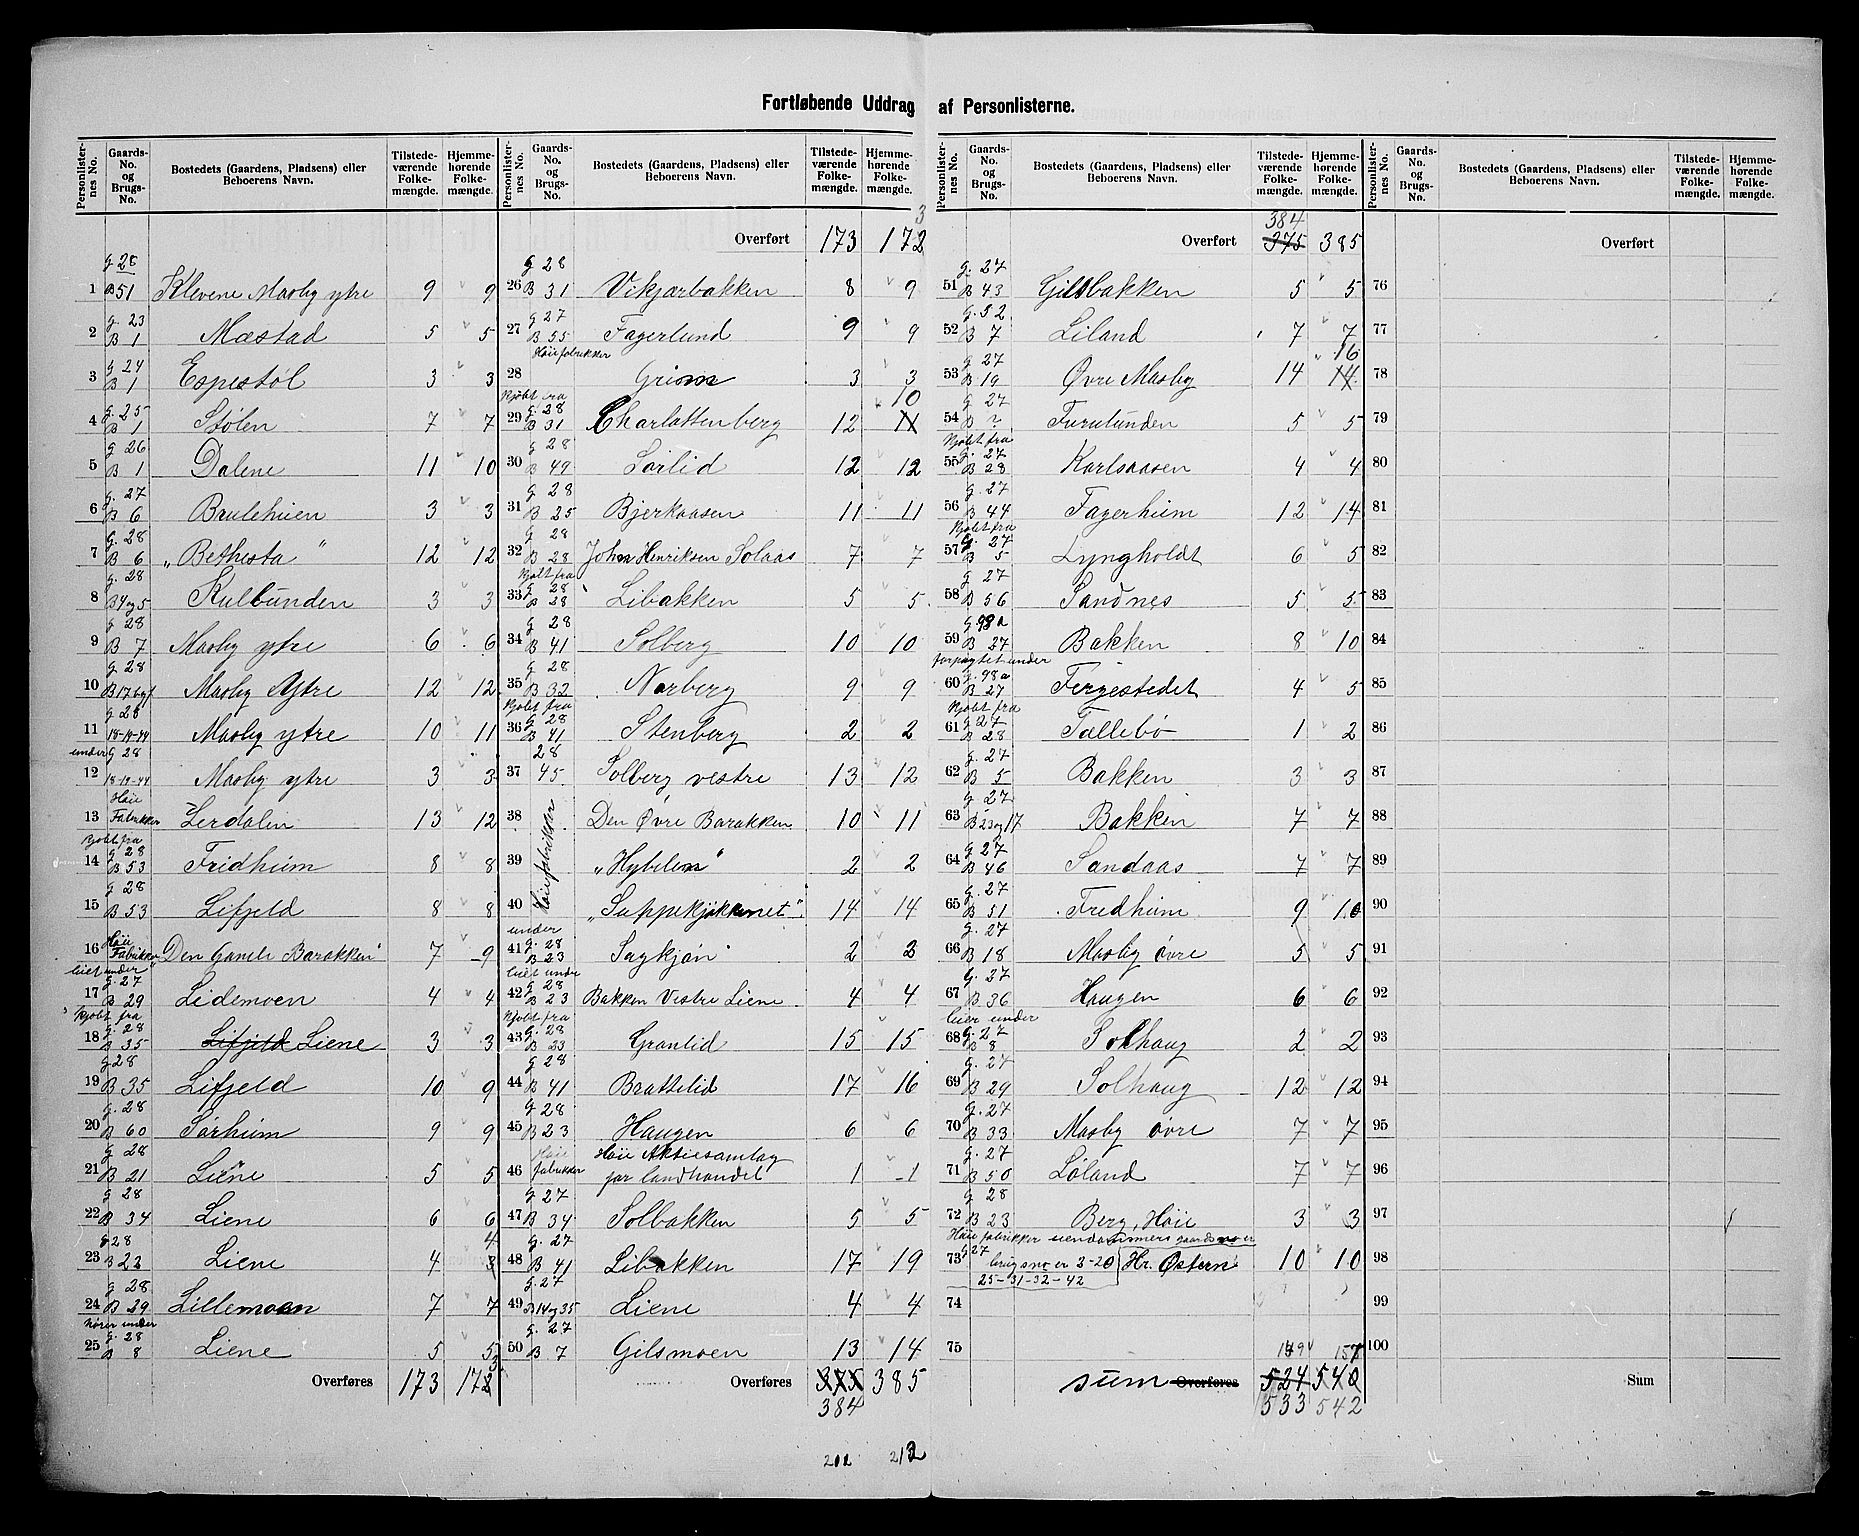 Fortløbende Uddrag af Personlisterne.
Personlisternes No. | Gaards-No. og Brugs-No. | Bostedets (Gaardens, Pladsens) eller Beboerens Navn. | Tilstedeværende Folkemængde. | Hjemmehørende Folkemængde.
g 28
1 B 51 Klevene Mosby ytre 9 9
g. 23
2 B 1 Mæstad 5 5
g 24
3 B 1 Espestøl 3 3
g. 25
4 B 1 Stølen 7 7
g 26
5 B 1 Dalene 11 10
g. 27
6 B 6 Brulehuen 3 3
g. 28
7 B 6 „Bethesta" 12 12
g. 28
8 B 4 og 5 Kulbunden 3 3
g 28
9 B 7 Mosby ytre 6 6
g 28
10 B 17 Mosby Ytre 12 12
g 28
11 18-19-44 Mosby ytre 10 11
under g 28
12 18-19-44 Mosby ytre 3 3
Høie
13 Fabrikker Lerdalen 13 12
Kjøbt fra g 28
14 B 53 Fridheim 8 8
g 28
15 B 53 Lifjeld 8 8
Høie
16 Fabrikker „Den Gamle Barakken" 7 9
leiet under g. 27
17 B 29 Lidemoen 4 4
Kjøbt fra g. 28
18 B 35 Lifjeld Liene 3 3
g 28
19 B 35 Lifjeld 10 9
g. 28
20 B 60 Sørheim 9 9
g 28
21 B 21 Liene 5 5
g 28
22 B 34 Liene 6 6
g 28 4
23 B 22 Liene 4 3
g 28
24 B 29 Lillemoen 7 7
g. 28
25 B 8 Liene 5 5
Overføres 173 172 3
Overført 173 172 3
g 28
26 B 31 Vikjarbakken 8 9
g 27
27 B 55 Fagerlund 9 9
Høie fabrikker
28 Grimm 3 3
Kjøbt fra g. 28 10
29 B 31 Charlattenberg 12 11
g 28
30 B 49 Sørlid 12 12
g 28
31 B 25 Bjerkaasen 11 11
g 28
32 B 28 John Henriksen Solaas 7 7
Kjøbt fra g 28
33 B 28 Libakken 5 5
g 28
34 B 41 Solberg 10 10
g 28
35 B 32 Norberg 9 9
Kjøbt fra g 28
36 B 41 Stenberg 2 2
28
37 45 Solberg vestre 13 12
Høie fabrikker
38 Den Øvre Barakken 10 11
39 „Hybelen" 2 2
40 „Suppekjøkkenet" 14 14
under g. 28
41 B 23 Sagkjøn 2 2
leiet under g. 28
42 B 23 Bakken Vestre Liene 4 4
Kjøbt fra g. 28
43 B 23 Granlid 15 15
g 28
44 B 41 Brattelid 17 16
g. 28
45 B 23 Haugen 6 6
Høie Høie Aktieselskab
46 fabrikker for landhandel 1 1
g 27
47 B 34 Solbakken 5 5
g. 27
48 B 41 Libakken 17 19
g. 27
49 B 14 og 35 Liene 4 4
g. 27
50 B 7 Gilsmoen 13 14
Overføres 375 385
384
202 213
384
Overført 375 385
g. 27
51 B 43 Gilsbakken 5 5
g. 52
52 B 7 Liland 7 7
g 27 16
53 B 19 Øvre Mosby 14 14
g 27
54 B ? Furulunden 5 5
Kjøbt fra g. 27
55 B 28 Karlsaasen 4 4
g. 27
56 B 44 Fagerheim 12 14
Kjøbt fra g. 27
57 B 5 Lyngholdt 6 5
g 27
58 B 56 Sandnes 5 5
g. 98 a
59 B 27 Bakken 8 10
forpagtet under g. 98 a
60 B 27 Fergestedet 4 5
Kjøbt fra g 27
61 B 28 Tallebø 1 2
g. 27
62 B 5 Bakken 3 3
g 27
63 B 23 og 17 Bakken 7 7
g 27
64 B 46 Sandaas 7 7
g. 27
65 B 51 Fredheim 9 10
g. 27
66 B 18 Mosby øvre 5 5
g. 27
67 B 36 Haugen 6 6
leier under g. 27
68 B 8 Solhaug 2 2
g. 27
69 B 29 Solhaug 12 12
g. 27
70 B 33 Mosby øvre 7 7
g. 27
71 B 50 Løland 7 7
g 28
72 B 23 Berg, Høie 3 3
Høie fabrikker eiendommers gaardsno er
73 g 27 brugsno er 3-20 Hr. Østern 10 10
25-31-32-42
74
75 149 157
sum Overføres 524 540
533 542
Overført
76
77
78
79
80
81
82
83
84
85
86
87
88
89
90
91
92
93
94
95
96
97
98
99
100
Sum